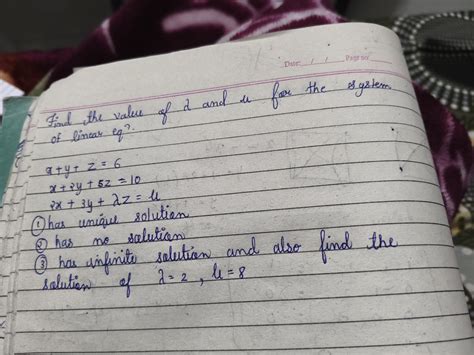 Date: / / Page no:
Find the value of λ and μ for the system
of linear eqⁿ.
x+y+z=6
x+2y+5z=10
2x+3y+λz=μ
① has unique solution
② has no solution
③ has infinite solution and also find the
solution of λ=2, μ=8